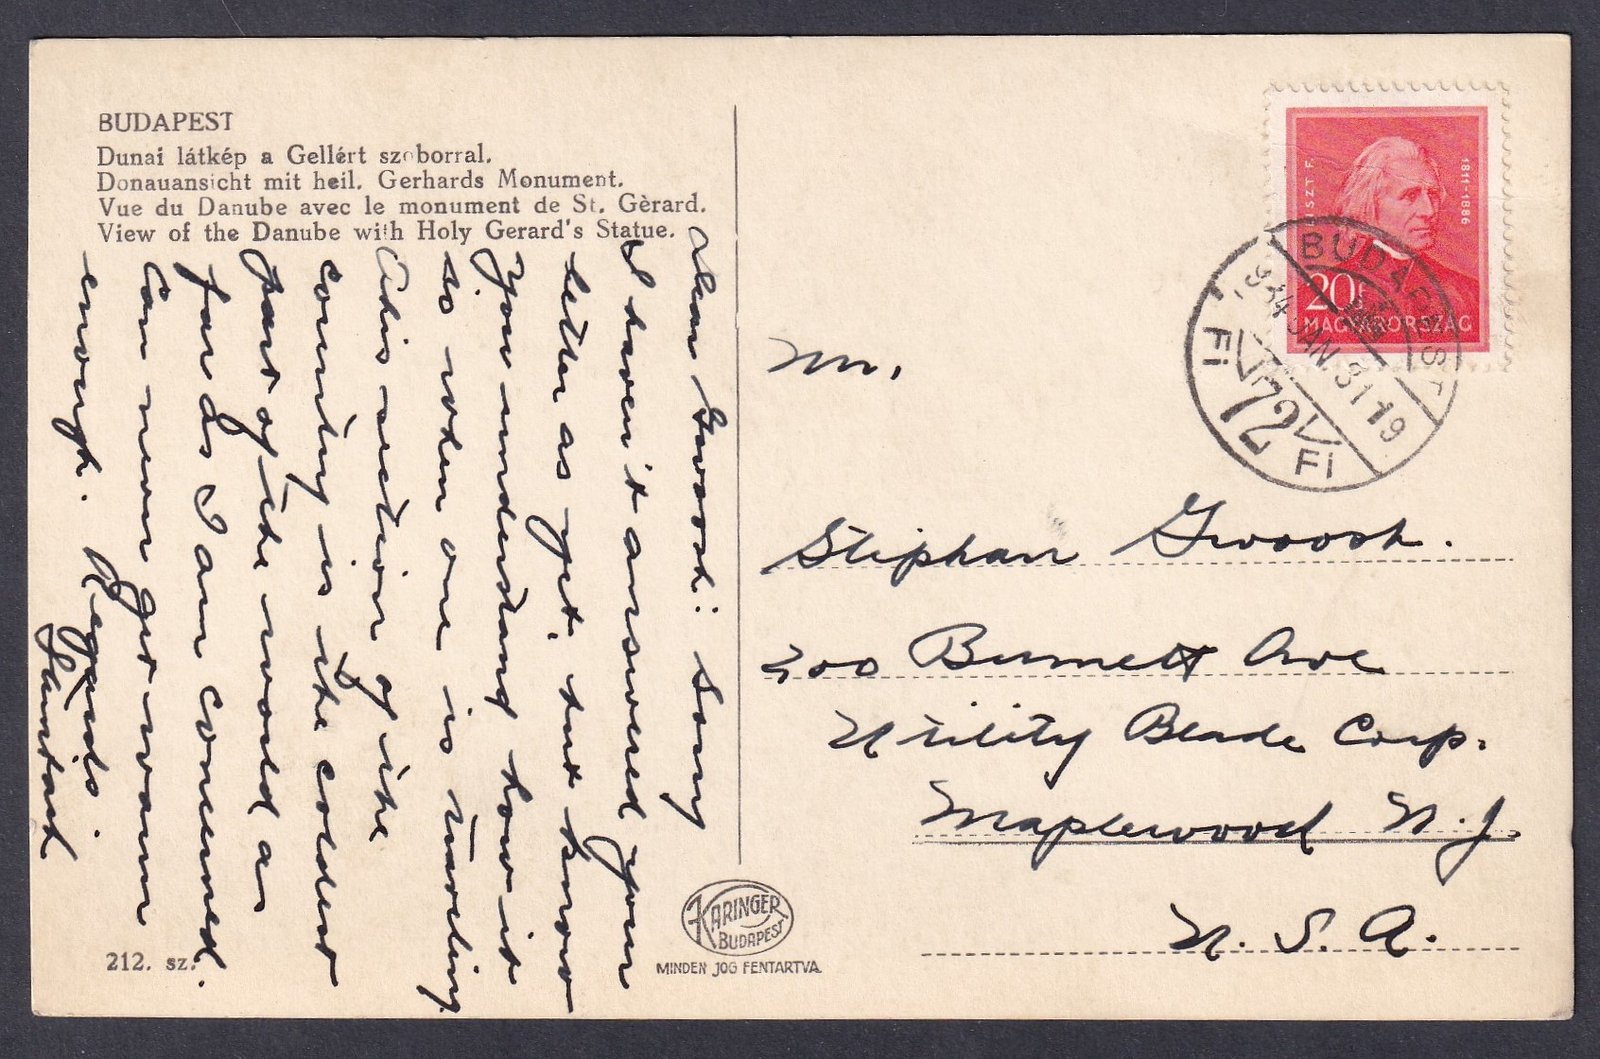 BUDAPEST
Dunai látkép a Gellért szoborral.
Donauansicht mit heil. Gerhards Monument.
Vue du Danube avec le monument de St. Gèrard.
View of the Danube with Holy Gerard's Statue.
Dear Gwoosh: Sorry
I haven't answered your
letter as yet, but know
you understand how it
is when one is traveling
This section of the
country is the coldest
part of the world as
far as I am concerned.
Can never get warm
enough. Regards
212. sz.
KARINGER
BUDAPEST
MINDEN JOG FENTARTVA
LISZT F.
1811-1886
20f
MAGYARORSZÁG
BUDAPEST
934 JAN. 31 19
Fi 72 Fi
Mr.
Stephan Gwoosh.
200 Burnett Ave
Utility Blade Corp.
Maplewood N.J.
U.S.A.